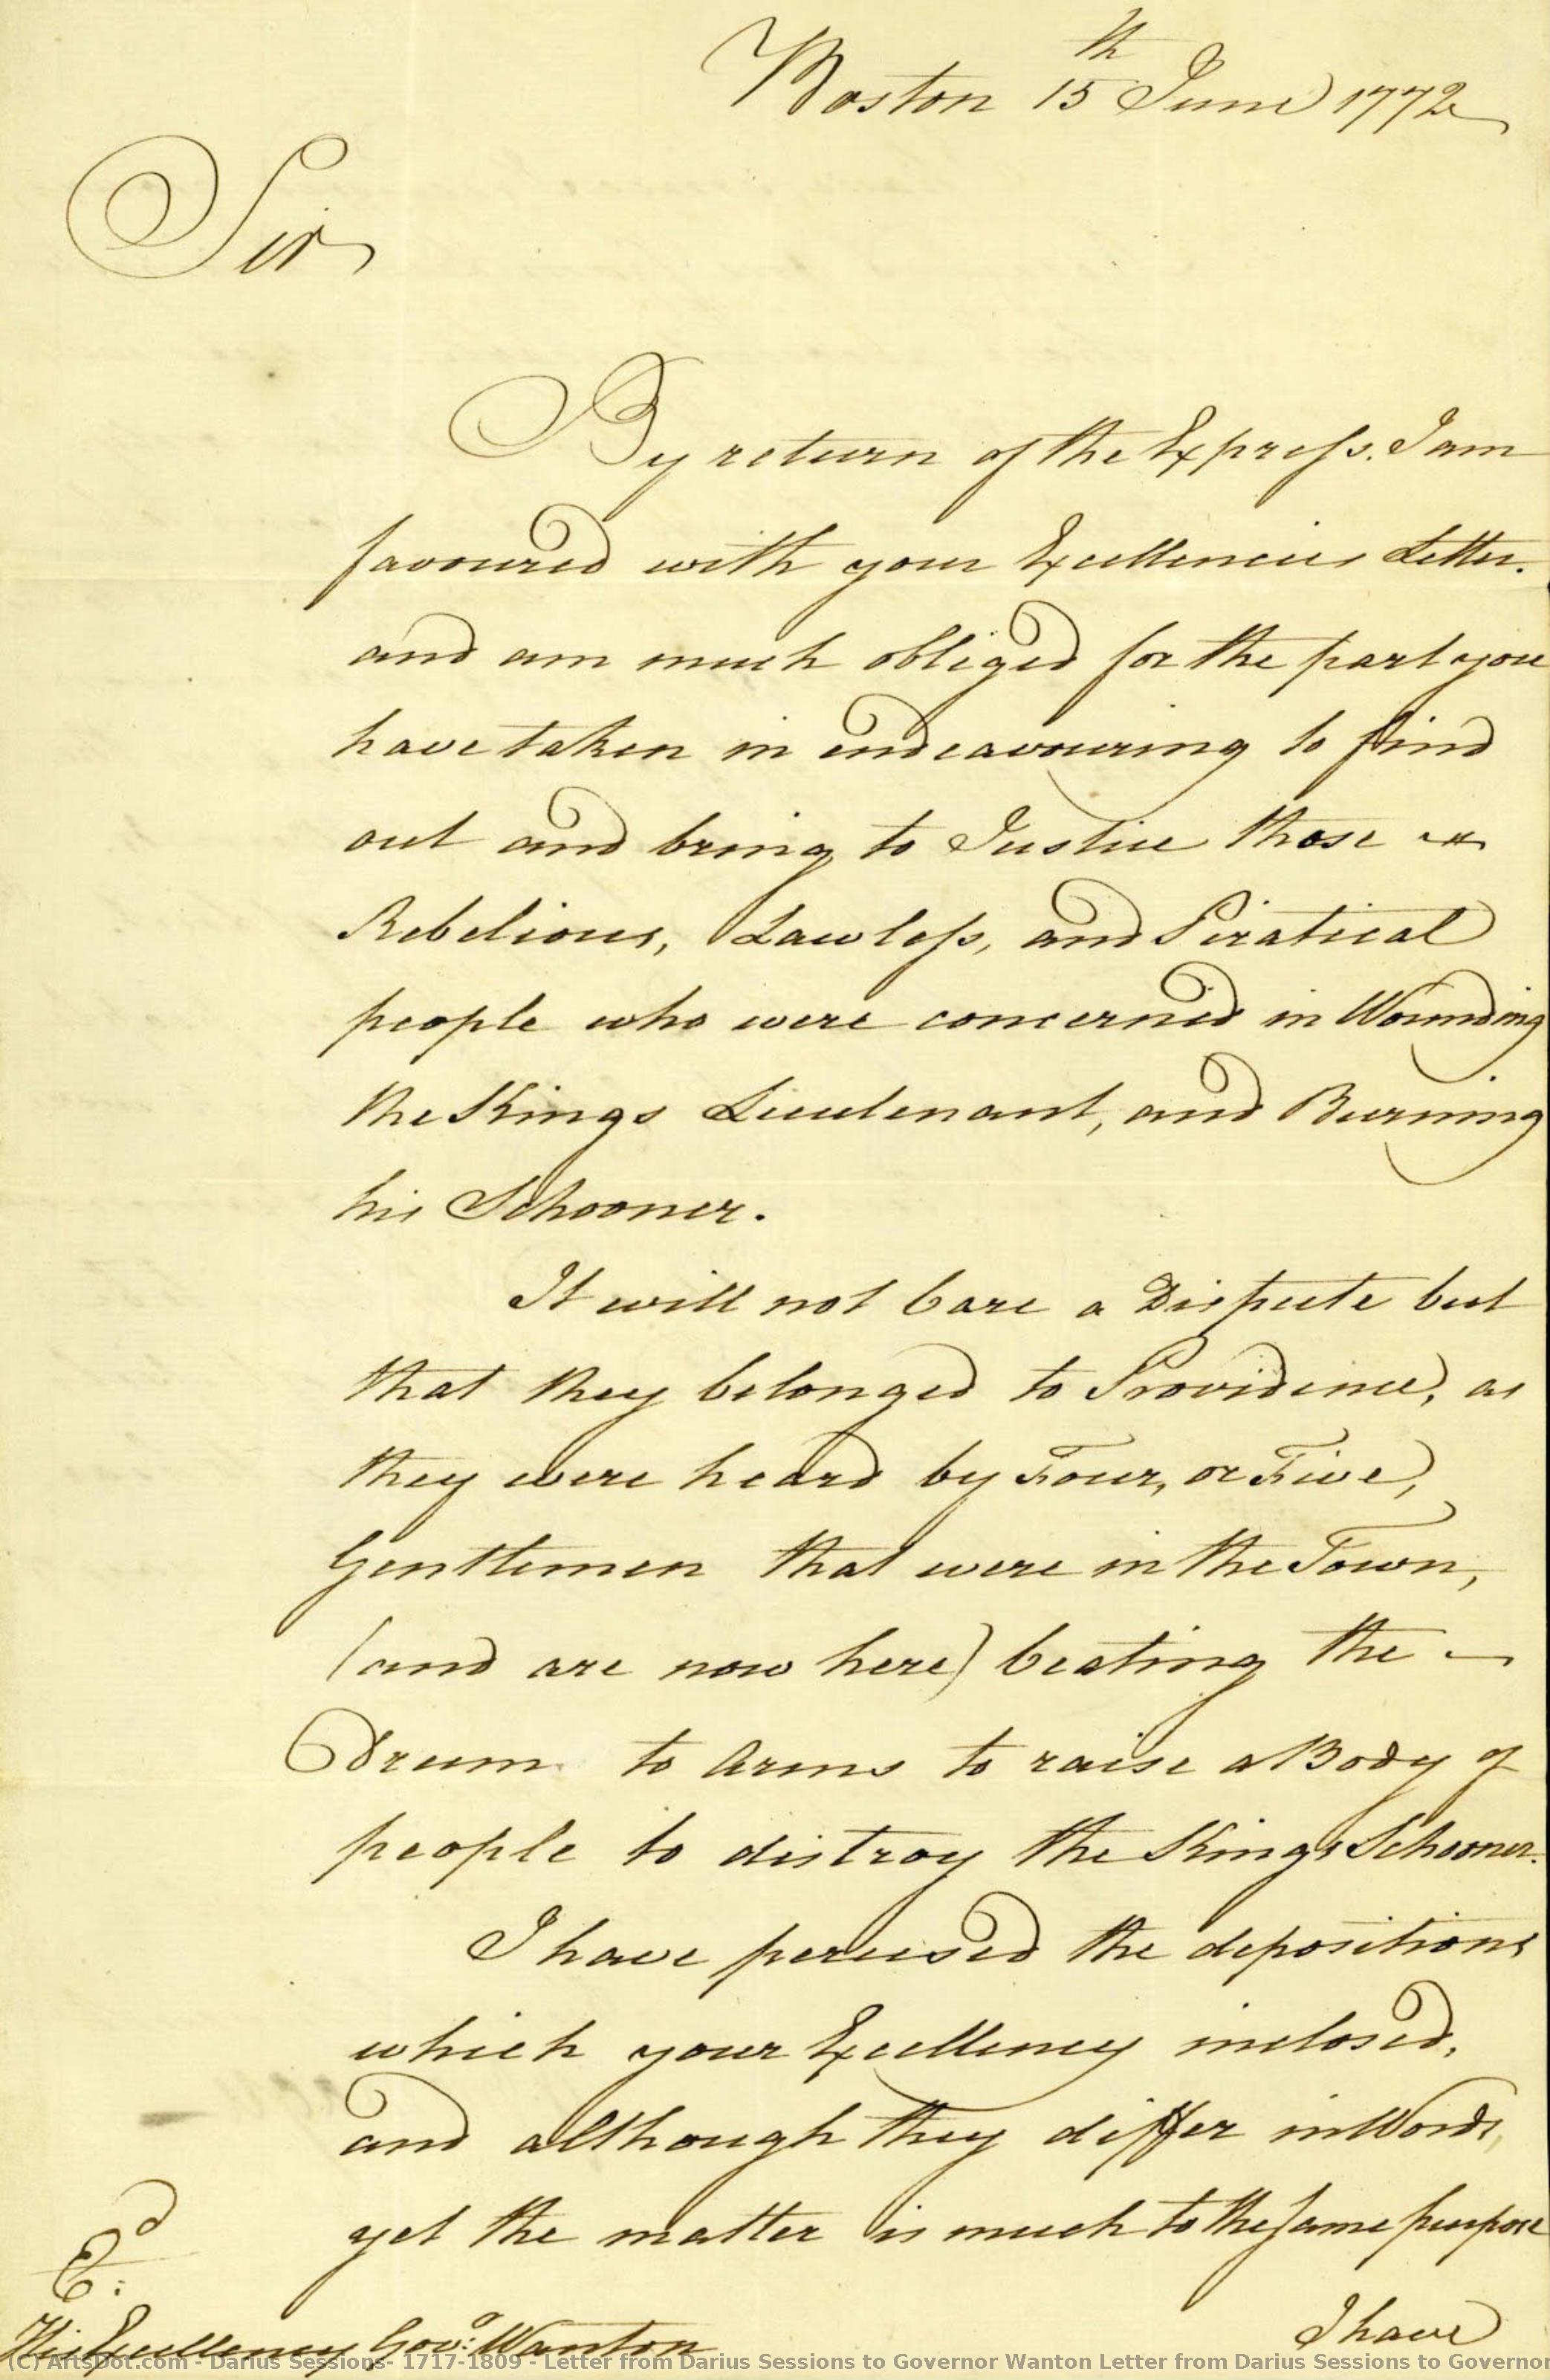 Boston 15th June 1772
Sir
By return of the Express. I am
favoured with your Excellencies Letter.
and am much obliged for the part you
have taken in endeavouring to find
out and bring to Justice those
Rebelious, Lawless, and Piratical
people who were concerned in Wounding
the Kings Lieutenant, and Burning
his Schooner.
It will not bare a Dispute but
that they belonged to Providence, as
they were heard by Four, or Five,
Gentlemen that were in the Town,
(and are now here) beating the
Drum to Arms to raise a Body of
people to distroy the Kings Schooner.
I have perused the depositions
which your Excellency inclosed,
and although they differ in Words,
yet the matter is much to the same purpose
I have
His Excellency Govo: Wanton
(C) ArtsDot.com - Darius Sessions- 1717-1809 - Letter from Darius Sessions to Governor Wanton Letter from Darius Sessions to Governor